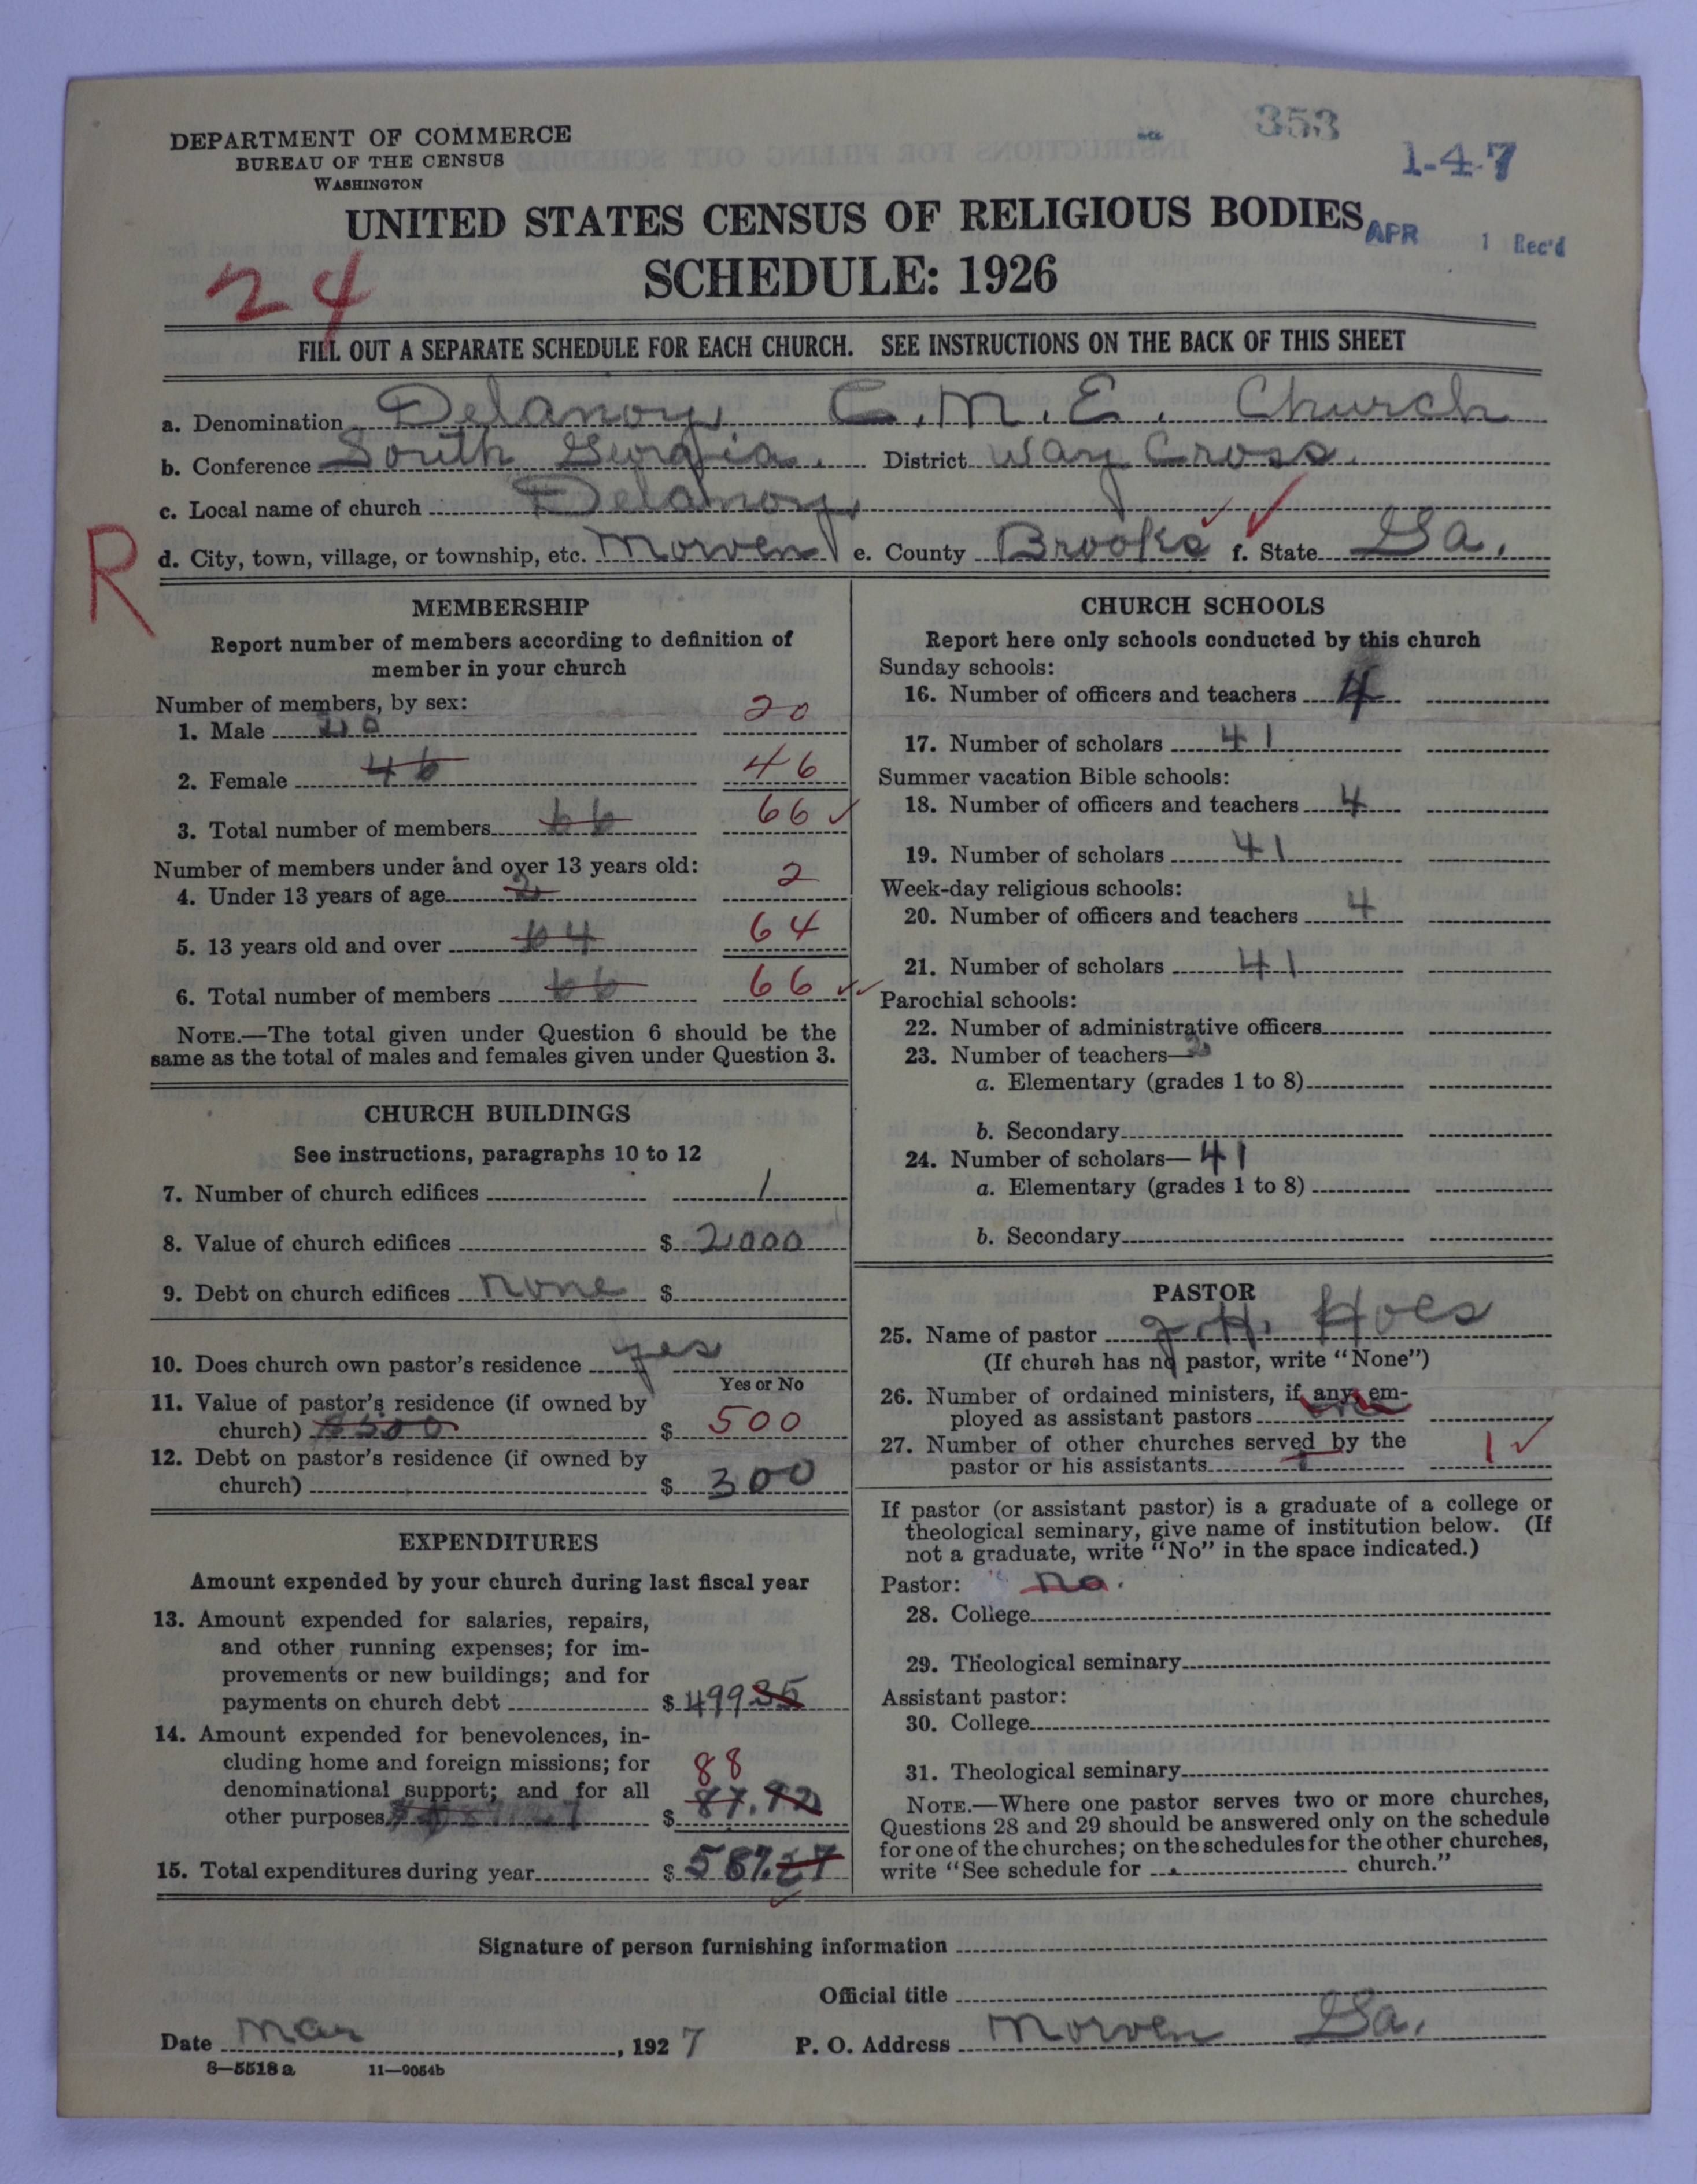 353
1-47
DEPARTMENT OF COMMERCE
BUREAU OF THE CENSUS
WASHINGTON
UNITED STATES CENSUS OF RELIGIOUS BODIES
APR 1 Rec'd
SCHEDULE: 1926
24
FILL OUT A SEPARATE SCHEDULE FOR EACH CHURCH. SEE INSTRUCTIONS ON THE BACK OF THIS SHEET
a. Denomination Delanoy C.M.E. Church
b. Conference South Georgia. District Way Cross.
c. Local name of church Delanoy
R
d. City, town, village, or township, etc. Morven e. County Brooks f. State Ga.
MEMBERSHIP
Report number of members according to definition of
member in your church
Number of members, by sex:
1. Male 20 20
2. Female 46 46
3. Total number of members 66 66 ✓
Number of members under and over 13 years old:
4. Under 13 years of age 2 2
5. 13 years old and over 64 64
6. Total number of members 66 66 ✓✓
NOTE.—The total given under Question 6 should be the
same as the total of males and females given under Question 3.
CHURCH BUILDINGS
See instructions, paragraphs 10 to 12
7. Number of church edifices 1
8. Value of church edifices $ 2000
9. Debt on church edifices none $
10. Does church own pastor's residence yes
Yes or No
11. Value of pastor's residence (if owned by
church) $500 $ 500
12. Debt on pastor's residence (if owned by
church) $ 300
EXPENDITURES
Amount expended by your church during last fiscal year
13. Amount expended for salaries, repairs,
and other running expenses; for im-
provements or new buildings; and for
payments on church debt $ 499 35
14. Amount expended for benevolences, in-
cluding home and foreign missions; for
88
denominational support; and for all
other purposes $ 87.92
15. Total expenditures during year $ 587.27
CHURCH SCHOOLS
Report here only schools conducted by this church
Sunday schools:
16. Number of officers and teachers 4
17. Number of scholars 41
Summer vacation Bible schools:
18. Number of officers and teachers 4
19. Number of scholars 41
Week-day religious schools:
20. Number of officers and teachers 4
21. Number of scholars 41
Parochial schools:
22. Number of administrative officers
23. Number of teachers—
a. Elementary (grades 1 to 8)
b. Secondary
24. Number of scholars— 41
a. Elementary (grades 1 to 8)
b. Secondary
PASTOR
25. Name of pastor J. H. Hoes
(If church has no pastor, write "None")
26. Number of ordained ministers, if any, em-
ployed as assistant pastors
27. Number of other churches served by the
pastor or his assistants 1 1 ✓
If pastor (or assistant pastor) is a graduate of a college or
theological seminary, give name of institution below. (If
not a graduate, write "No" in the space indicated.)
Pastor: no.
28. College
29. Theological seminary
Assistant pastor:
30. College
31. Theological seminary
NOTE.—Where one pastor serves two or more churches,
Questions 28 and 29 should be answered only on the schedule
for one of the churches; on the schedules for the other churches,
write "See schedule for church."
Signature of person furnishing information
Official title
Date Mar, 1927 P. O. Address Morven Ga.
8—5518 a 11—9054b